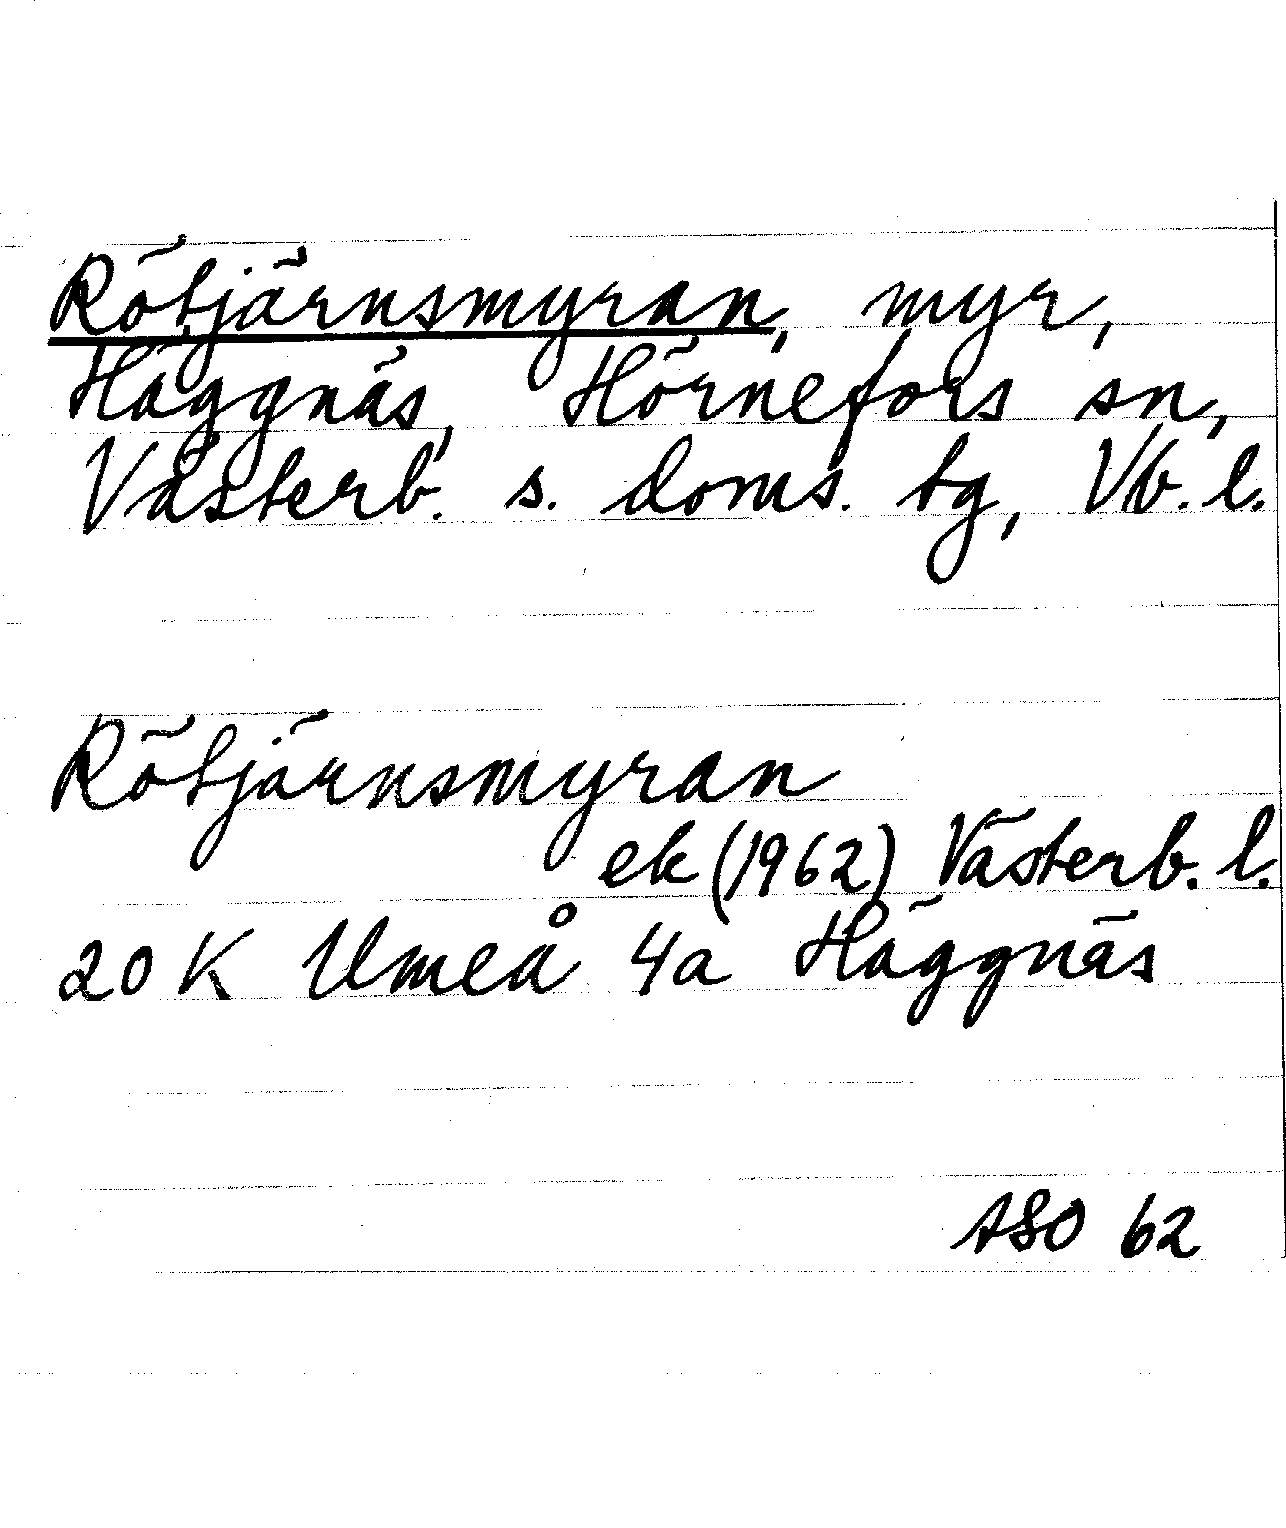 Rötjärnsmyran, myr,
Häggnäs, Hörnefors sn,
Västerb. s. doms. tg, Vb. l.
Rötjärnsmyran
ek (1962) Västerb. l.
20 K Umeå 4a Häggnäs
ASO 62